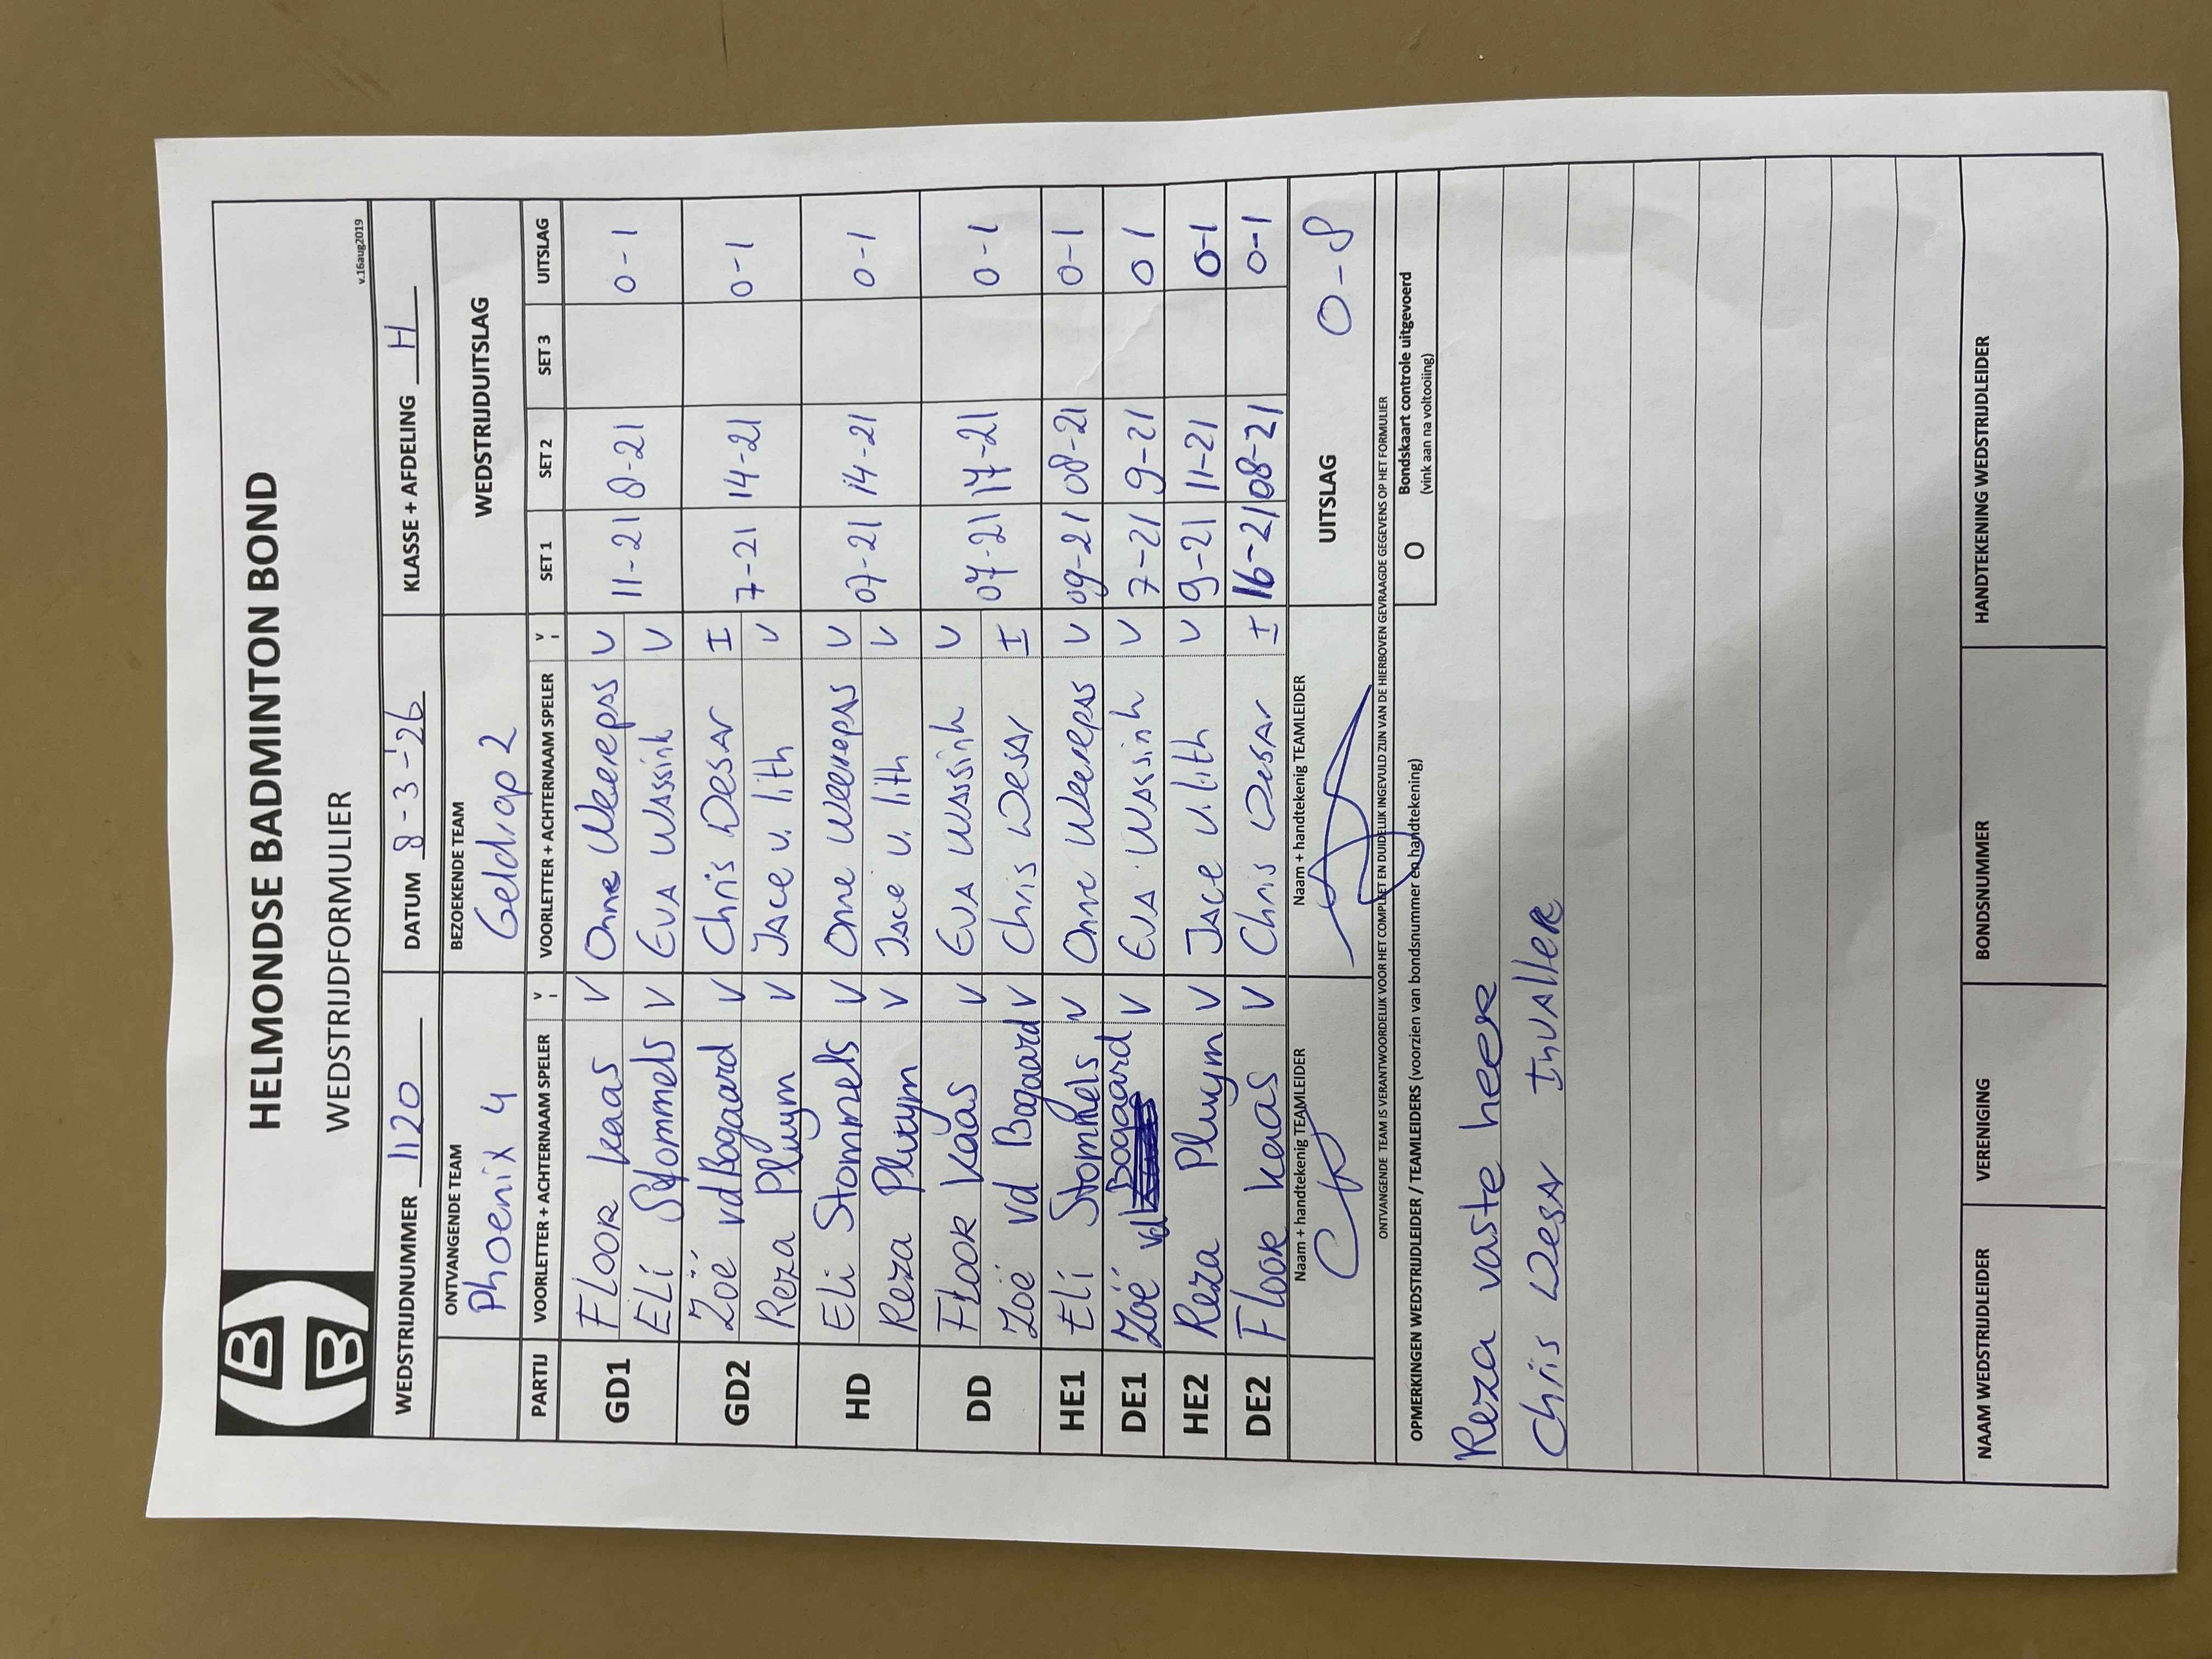 HELMONDSE BADMINTON BOND
WEDSTRIJDFORMULIER
v.16aug2019
WEDSTRIJDNUMMER 1120 DATUM 8-3-'26 KLASSE + AFDELING H
ONTVANGENDE TEAM BEZOEKENDE TEAM WEDSTRIJDUITSLAG
Phoenix 4 Geldrop 2
PARTIJ VOORLETTER + ACHTERNAAM SPELER V I VOORLETTER + ACHTERNAAM SPELER V I SET 1 SET 2 SET 3 UITSLAG
GD1 Floor Kaas V Onne Weereps V 11-21 8-21 0-1
Eli Stommels V Eva Wassink V
GD2 Zoë vd Bogaard V Chris Desar I 7-21 14-21 0-1
Reza Pluym V Jace v. lith V
HD Eli Stommels V Onne Weereps V 07-21 14-21 0-1
Reza Pluym V Jace v. lith V
DD Floor Kaas V Eva Wassink V 07-21 17-21 0-1
Zoë vd Bogaard V Chris Desar I
HE1 Eli Stommels V Onne Weereps V 09-21 08-21 0-1
DE1 Zoë vd Bogaard V Eva Wassink V 7-21 9-21 0 1
HE2 Reza Pluym V Jace v. lith V 9-21 11-21 0-1
DE2 Floor Kaas V Chris Desar I 16-21 08-21 0-1
Naam + handtekenig TEAMLEIDER Naam + handtekenig TEAMLEIDER UITSLAG 0-8
ONTVANGENDE TEAM IS VERANTWOORDELIJK VOOR HET COMPLEET EN DUIDELIJK INGEVULD ZIJN VAN DE HIERBOVEN GEVRAAGDE GEGEVENS OP HET FORMULIER
OPMERKINGEN WEDSTRIJDLEIDER / TEAMLEIDERS (voorzien van bondsnummer en handtekening)
O Bondskaart controle uitgevoerd
(vink aan na voltooiing)
Reza vaste heer
Chris Desar Invaller
NAAM WEDSTRIJDLEIDER VERENIGING BONDSNUMMER HANDTEKENING WEDSTRIJDLEIDER